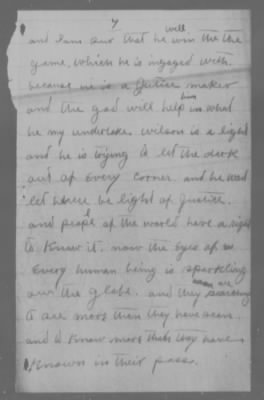 7
and I am sur that he will win the the
game, which he is ingaged with.
because he is a Justice maker
and the god will help him in what
he my undertake. Wilson is a light
and he is trying to let the dark
out of every corner. and he want
let where be light of Justice.
and people of the world have a right
to know it. now the eyes of
every human being is sparkling
over the globe. and they are searching
to see mors then they have seen.
and to know mors thats they have
known in their pass.